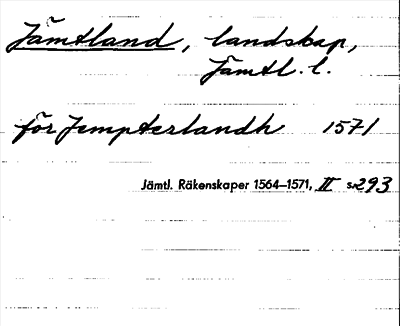 Jämtland, landskap,
Jämtl. l.
för Jempterlandh 1571
Jämtl. Räkenskaper 1564—1571, II s. 293